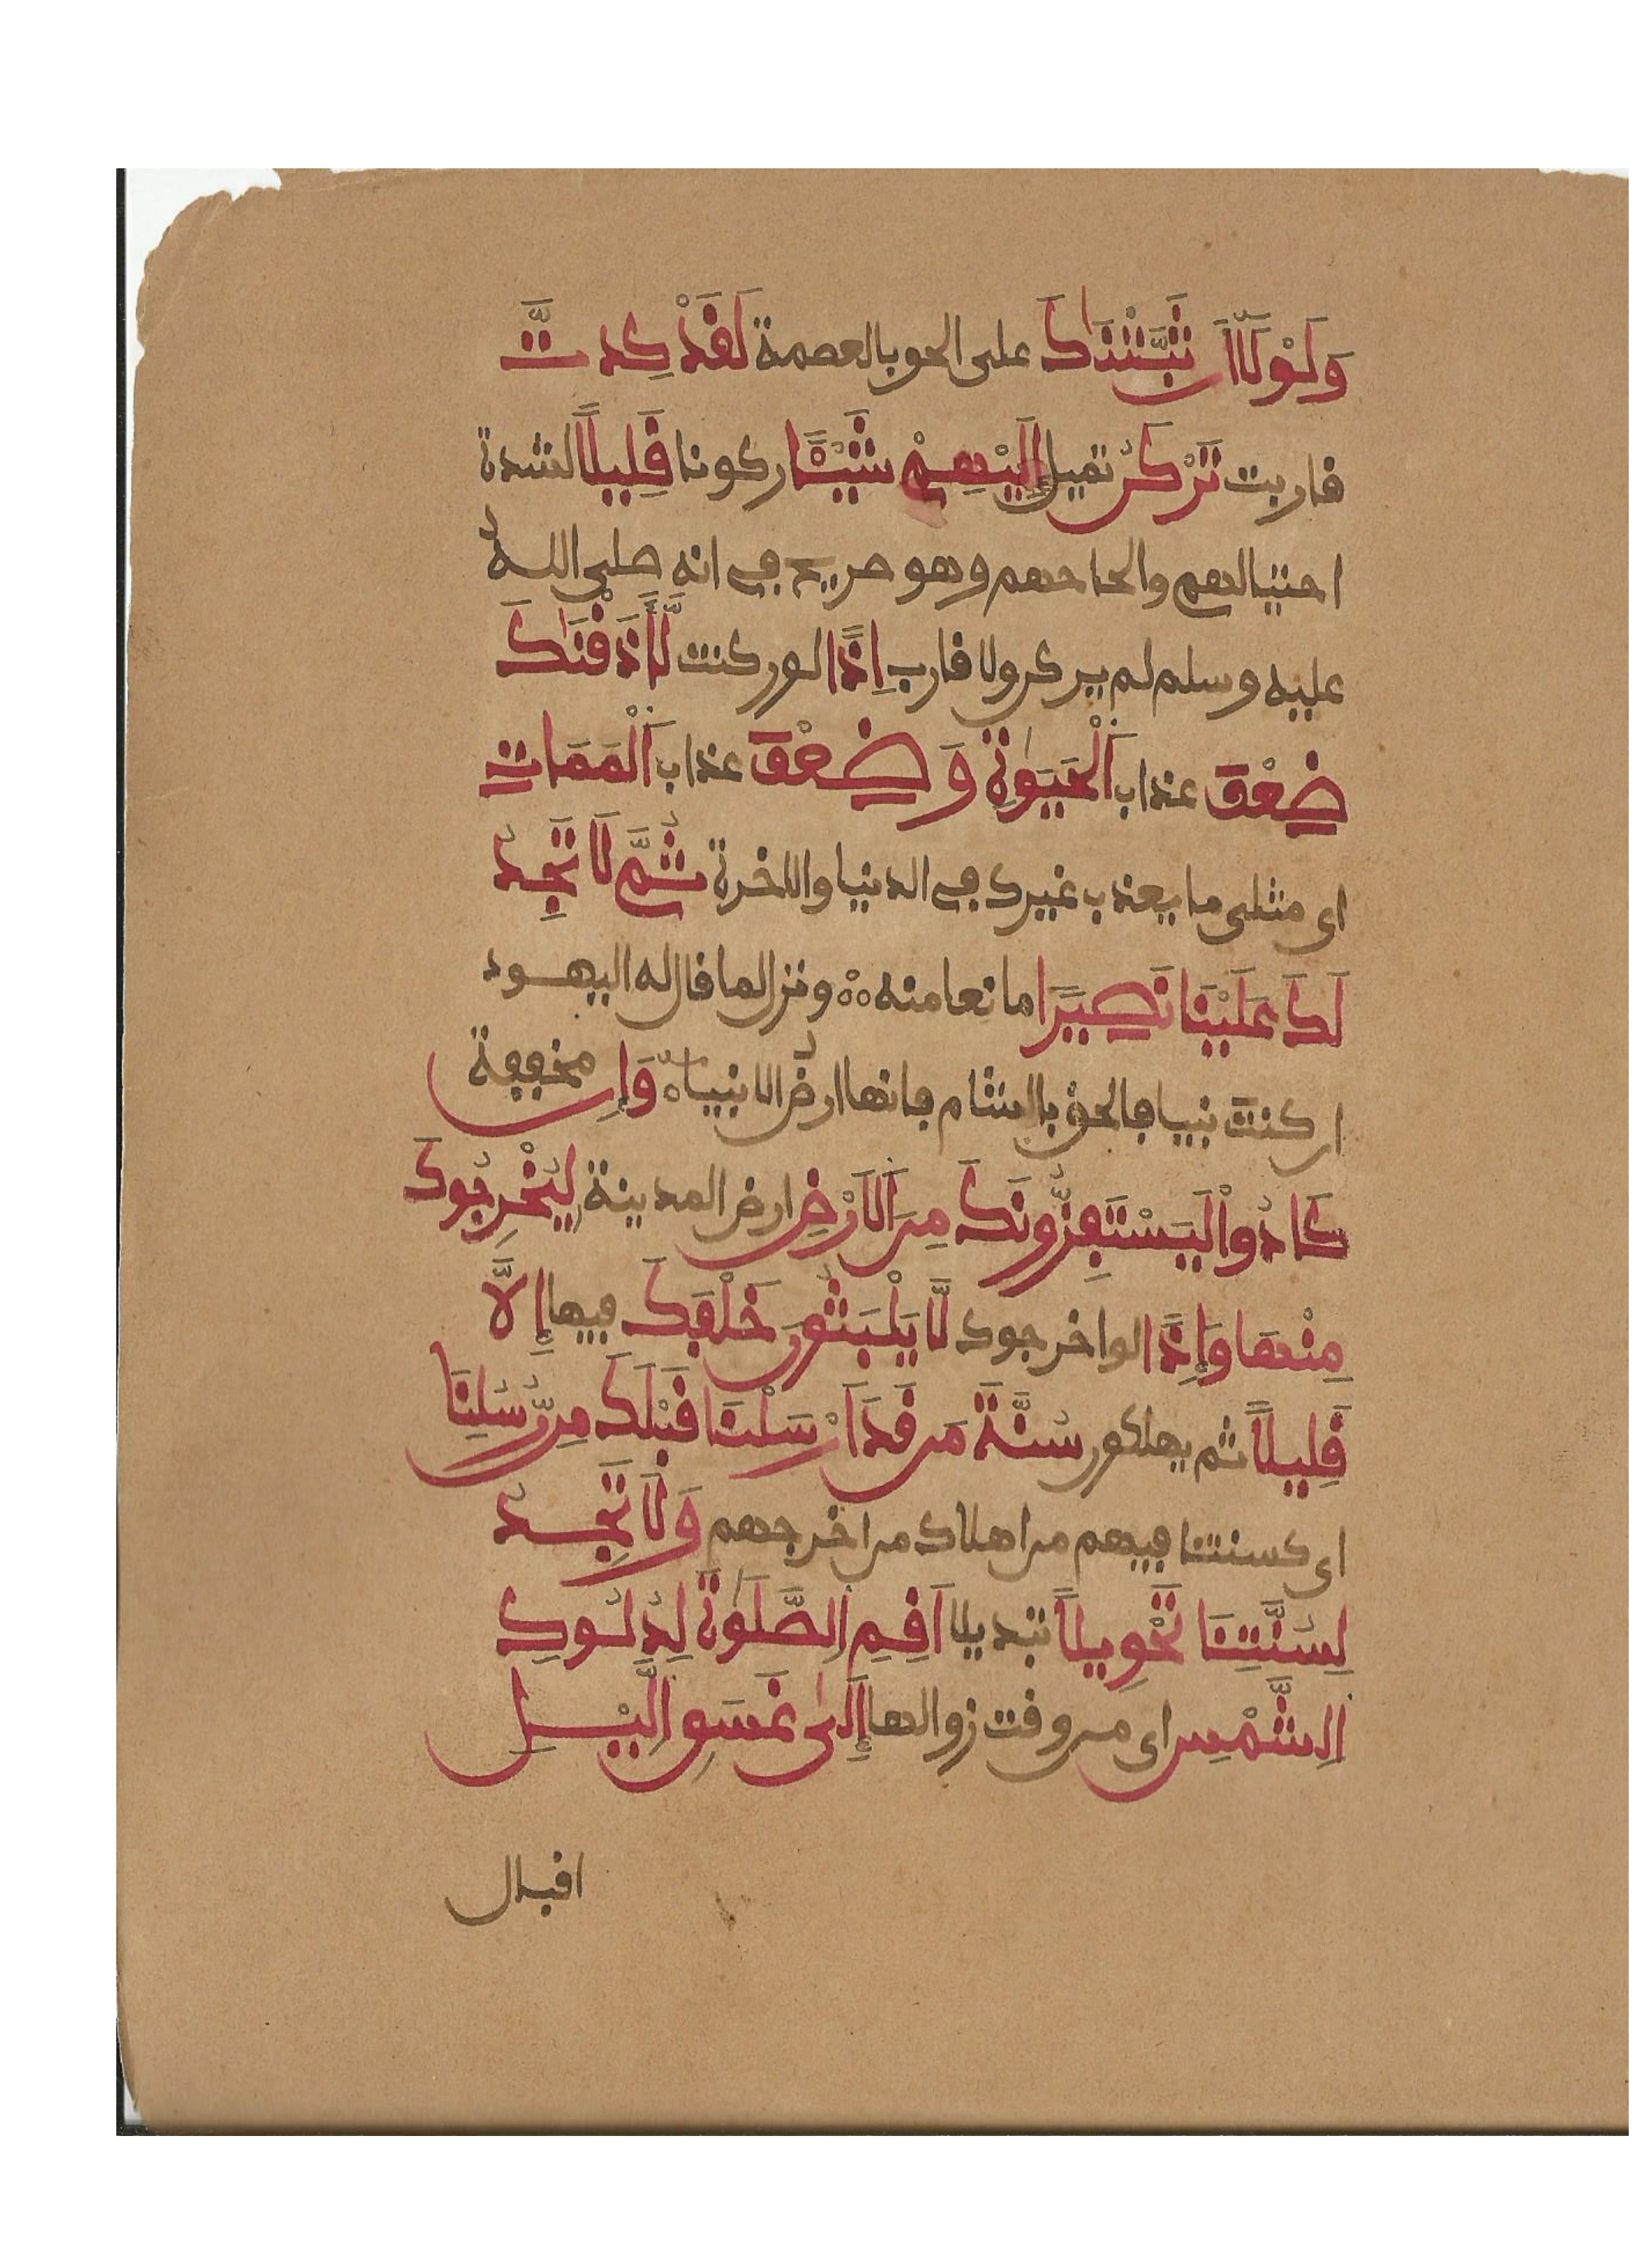 وَلَوْلَآ أَن ثَبَّتْنَٰكَ على الحق بالعصمة لَقَدْ كِدتَّ
قاربت تَرْكَنُ تميل إِلَيْهِمْ شَيْـًٔا ركونا قَلِيلًا لشدة
احتيالهم والحاحهم وهو صريح في انه صلى اللهُ
عليه وسلم لم يركن ولا قارب إِذًا لو ركنت لَّأَذَقْنَٰكَ
ضِعْفَ عذاب اَلْحَيَوٰةِ وَضِعْفَ عذاب اَلْمَمَاتِ
اى مثلى ما يعذب غيرك في الدنيا والاخرة ثُمَّ لَا تَجِدُ
لَكَ عَلَيْنَا نَصِيرًا مانعا منه ونزل لما قال له اليهود
ان كنتَ نبيا فالحقْ بالشام فانها ارضُ الانبياء وَإِن مخففة
كَادُواْ لَيَسْتَفِزُّونَكَ مِنَ اَلَارْضِ ارض المدينة لِيُخْرِجُوكَ
مِنْهَا وَإِذًا لو اخرجوك لَّا يَلْبَثُونَ خَلْفَكَ فيها إِلَّا
قَلِيلًا ثم يهلكون سُنَّةَ مَن قَدَ اَرْسَلْنَا قَبْلَكَ مِن رُّسُلِنَا
اى كسنتنا فيهم من اهلاك من اخرجهم وَلَا تَجِدُ
لِسُنَّتِنَا تَحْوِيلًا تبديلا اَقِمِ اِلصَّلَوٰةَ لِدُلُوكِ
اِلشَّمْسِ اى من وقت زوالها إِلَىٰ غَسَقِ اِلَّيْلِ
اقبال